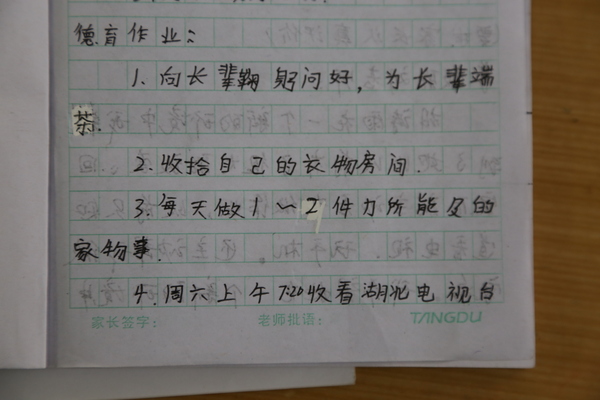 德育作业：
1. 向长辈鞠躬问好，为长辈端
茶.
2. 收拾自己的衣物房间.
3. 每天做1～2件力所能及的
家物事.
4. 周六上午7:20收看湖北电视台
家长签字： 老师批语： TANGDU